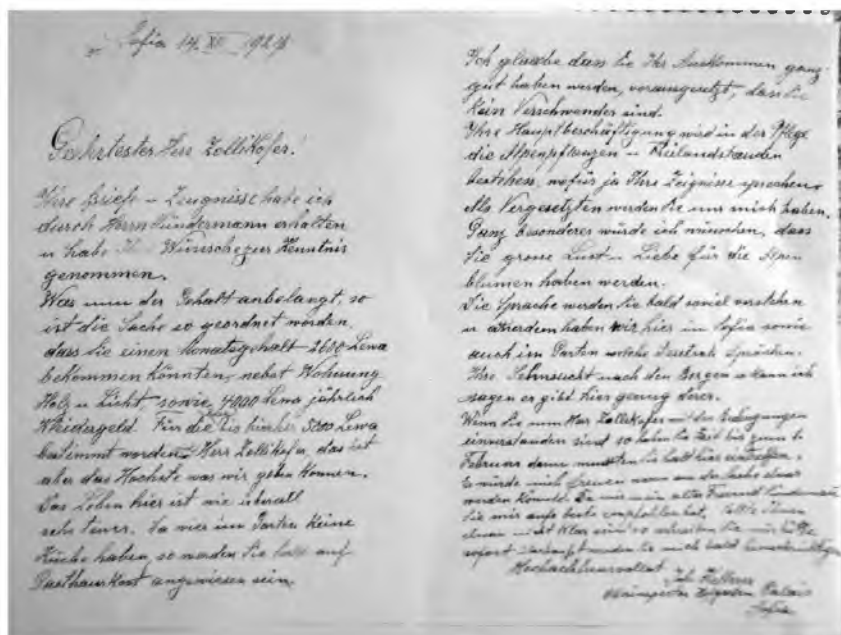 Sofia 14. XII 1924
Geehrtester Herr Zollikofer!
Ihre Briefe u Zeugnisse habe ich
durch Herrn Sündermann erhalten
u habe Wünsche zur Kenntnis
genommen.
Was nun der Gehalt anbelangt, so
ist die Sache so geordnet worden,
dass Sie einen Monatsgehalt 2600 Lewa
bekommen könnten, nebst Wohnung
Holz u Licht, sowie 4000 Lewa jährlich
Kleidergeld. Für die hieher 3000 Lewa
bestimmt worden. Herr Zollikofer, das ist
aber das Höchste was wir geben können.
Das Leben hier ist wie überall
sehr teuer. Da wier im Garten keine
Küche haben, so werden Sie auf
Gasthauskost angewiesen sein.
Ich glaube dass Sie Ihr Auskommen ganz
gut haben werden, vorausgesetzt, dass Sie
kein Verschwender sind.
Ihre Hauptbeschäftigung wird in der Pflege
die Alpenpflanzen u
bestehen, wofür ja Ihre Zeignisse sprechen.
Als Vorgesetzten werden Sie nur mich haben.
Ganz besonderes würde ich wünschen, dass
Sie grosse Lust u Liebe für die Alpen
blumen haben werden.
Die Sprache werden Sie bald soviel verstehen
u ausserdem haben wir hier in Sofia sowie
auch im Garten welche Deutsch sprächen.
Ihre Sehnsucht nach den Bergen so kann ich
sagen es gibt hier genug derer.
Wenn Sie nun Herr Zollikofer mit den Bedingungen
einverstanden sind so haben Sie Zeit bis zum 1.
Februar dann mussten Sie halt hier eintreffen.
Es würde mich freuen wenn aus der Sache etwas
werden könnte. Da mir mein alter Freund Sündermann
Sie mir aufs beste empfohlen hat,
etwas nicht klar sein so schreiben Sie mir
sofort Sie mich bald
Hochachtungsvollst
Joh. Kellerer
Palais
Sofia